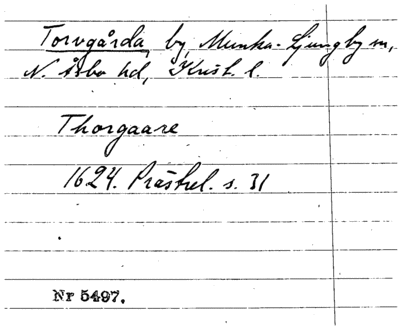 Torvgårda, by, Munka-Ljungby sn,
N. Åsbo hd, Krist. l.
Thorgaare
1624. Prästrel. s. 31
Nr 5497.